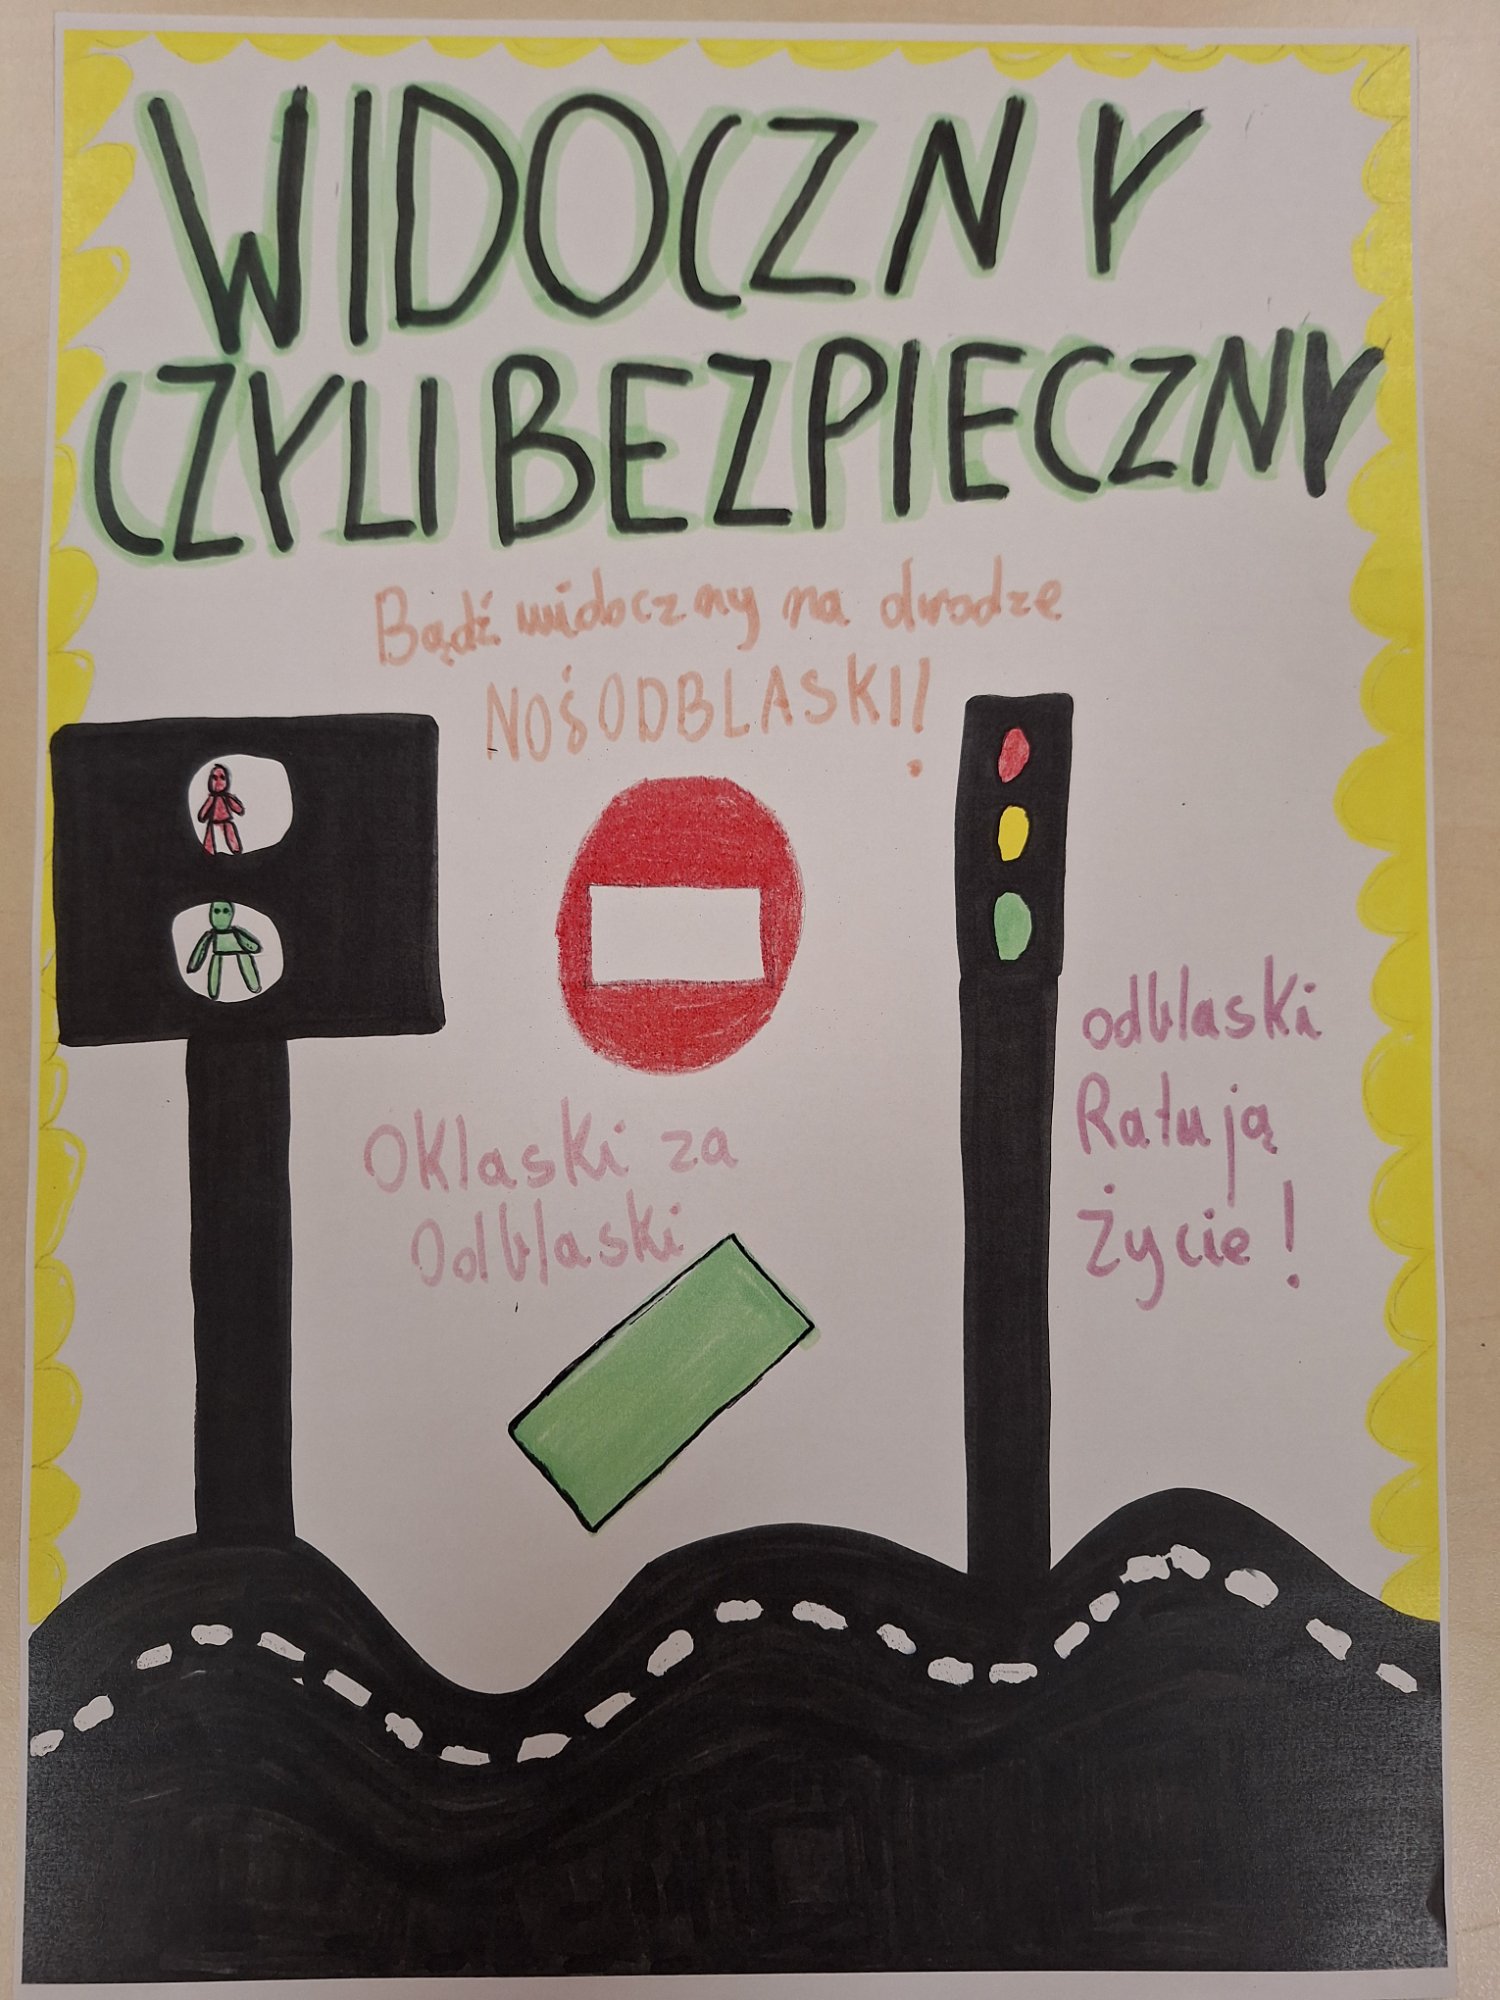 WIDOCZNY
CZYLI BEZPIECZNY
Bądź widoczny na drodze
NOŚ ODBLASKI!
Oklaski za
Odblaski
odblaski
Ratują
Życie!